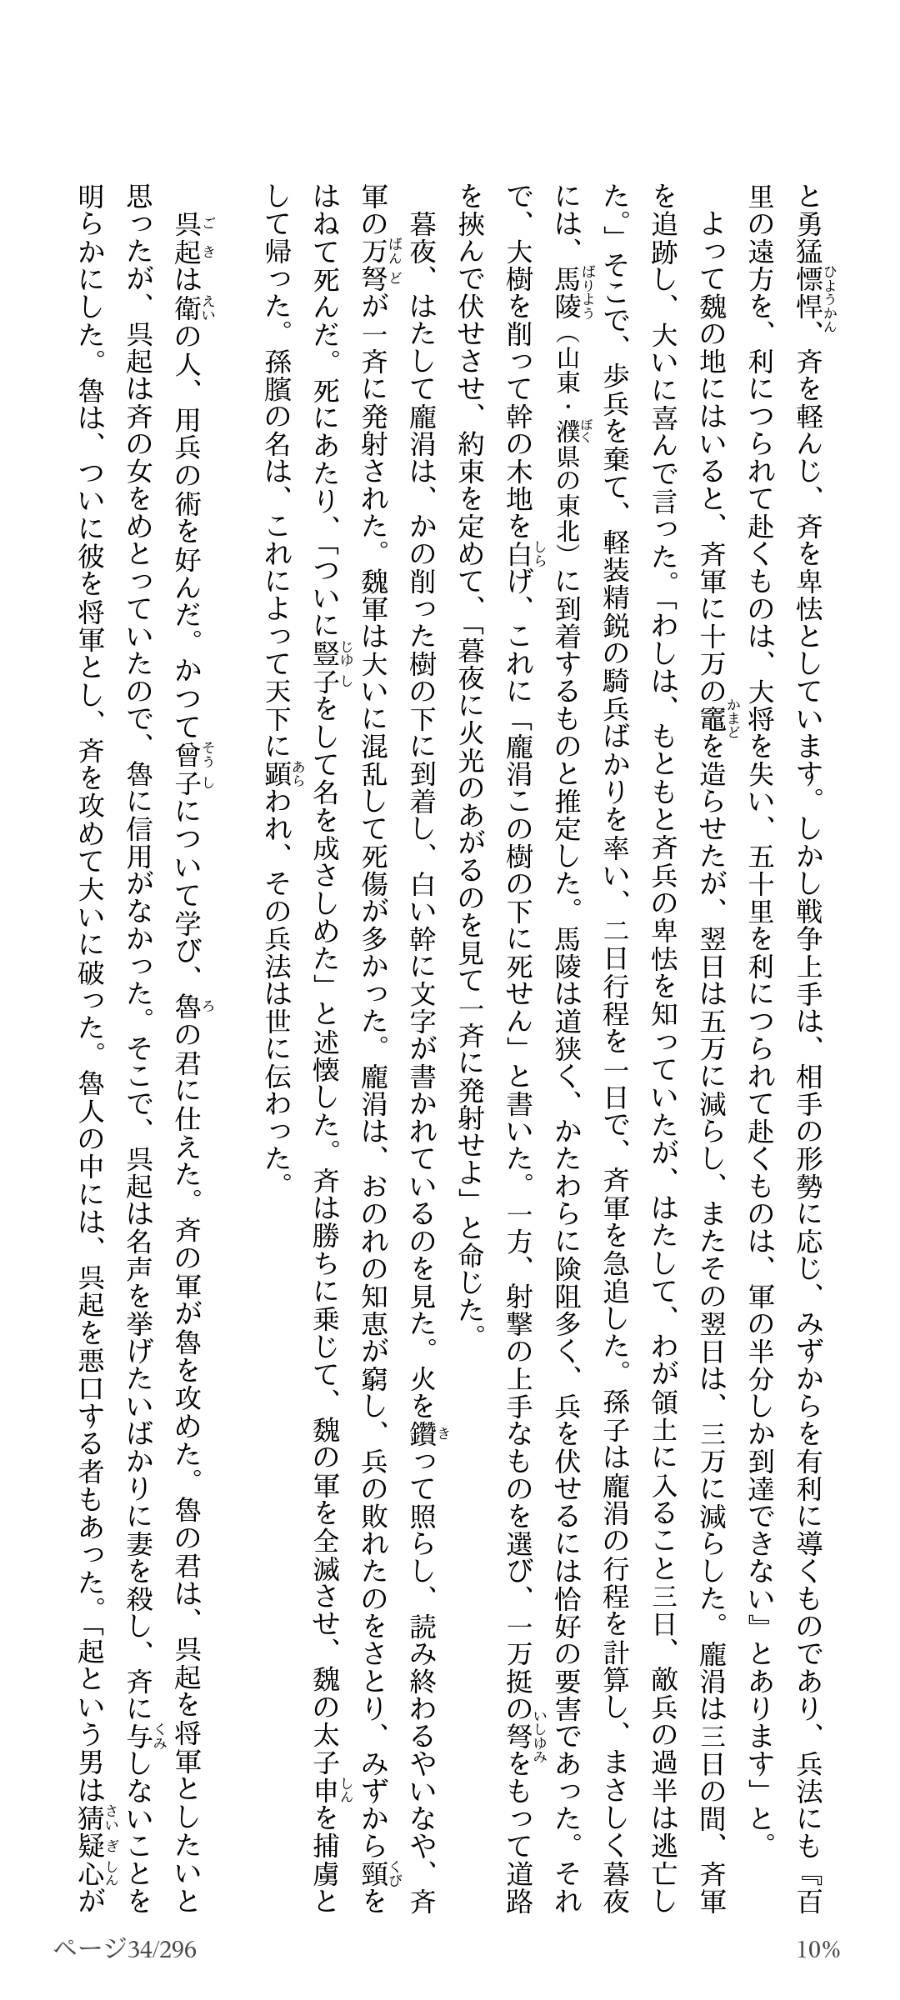 と勇猛慓悍、斉を軽んじ、斉を卑怯としています。しかし戦争上手は、相手の形勢に応じ、みずからを有利に導くものであり、兵法にも『百
里の遠方を、利につられて赴くものは、大将を失い、五十里を利につられて赴くものは、軍の半分しか到達できない』とあります」と。
よって魏の地にはいると、斉軍に十万の竈を造らせたが、翌日は五万に減らし、またその翌日は、三万に減らした。龐涓は三日の間、斉軍
を追跡し、大いに喜んで言った。「わしは、もともと斉兵の卑怯を知っていたが、はたして、わが領土に入ること三日、敵兵の過半は逃亡し
た。」そこで、歩兵を棄て、軽装精鋭の騎兵ばかりを率い、二日行程を一日で、斉軍を急追した。孫子は龐涓の行程を計算し、まさしく暮夜
には、馬陵（山東・濮県の東北）に到着するものと推定した。馬陵は道狭く、かたわらに険阻多く、兵を伏せるには恰好の要害であった。それ
で、大樹を削って幹の木地を白げ、これに「龐涓この樹の下に死せん」と書いた。一方、射撃の上手なものを選び、一万挺の弩をもって道路
を挾んで伏せさせ、約束を定めて、「暮夜に火光のあがるのを見て一斉に発射せよ」と命じた。
暮夜、はたして龐涓は、かの削った樹の下に到着し、白い幹に文字が書かれているのを見た。火を鑽って照らし、読み終わるやいなや、斉
軍の万弩が一斉に発射された。魏軍は大いに混乱して死傷が多かった。龐涓は、おのれの知恵が窮し、兵の敗れたのをさとり、みずから頸を
はねて死んだ。死にあたり、「ついに豎子をして名を成さしめた」と述懐した。斉は勝ちに乗じて、魏の軍を全滅させ、魏の太子申を捕虜と
して帰った。孫臏の名は、これによって天下に顕われ、その兵法は世に伝わった。
呉起は衛の人、用兵の術を好んだ。かつて曾子について学び、魯の君に仕えた。斉の軍が魯を攻めた。魯の君は、呉起を将軍としたいと
思ったが、呉起は斉の女をめとっていたので、魯に信用がなかった。そこで、呉起は名声を挙げたいばかりに妻を殺し、斉に与しないことを
明らかにした。魯は、ついに彼を将軍とし、斉を攻めて大いに破った。魯人の中には、呉起を悪口する者もあった。「起という男は猜疑心が
ページ34/296
10%